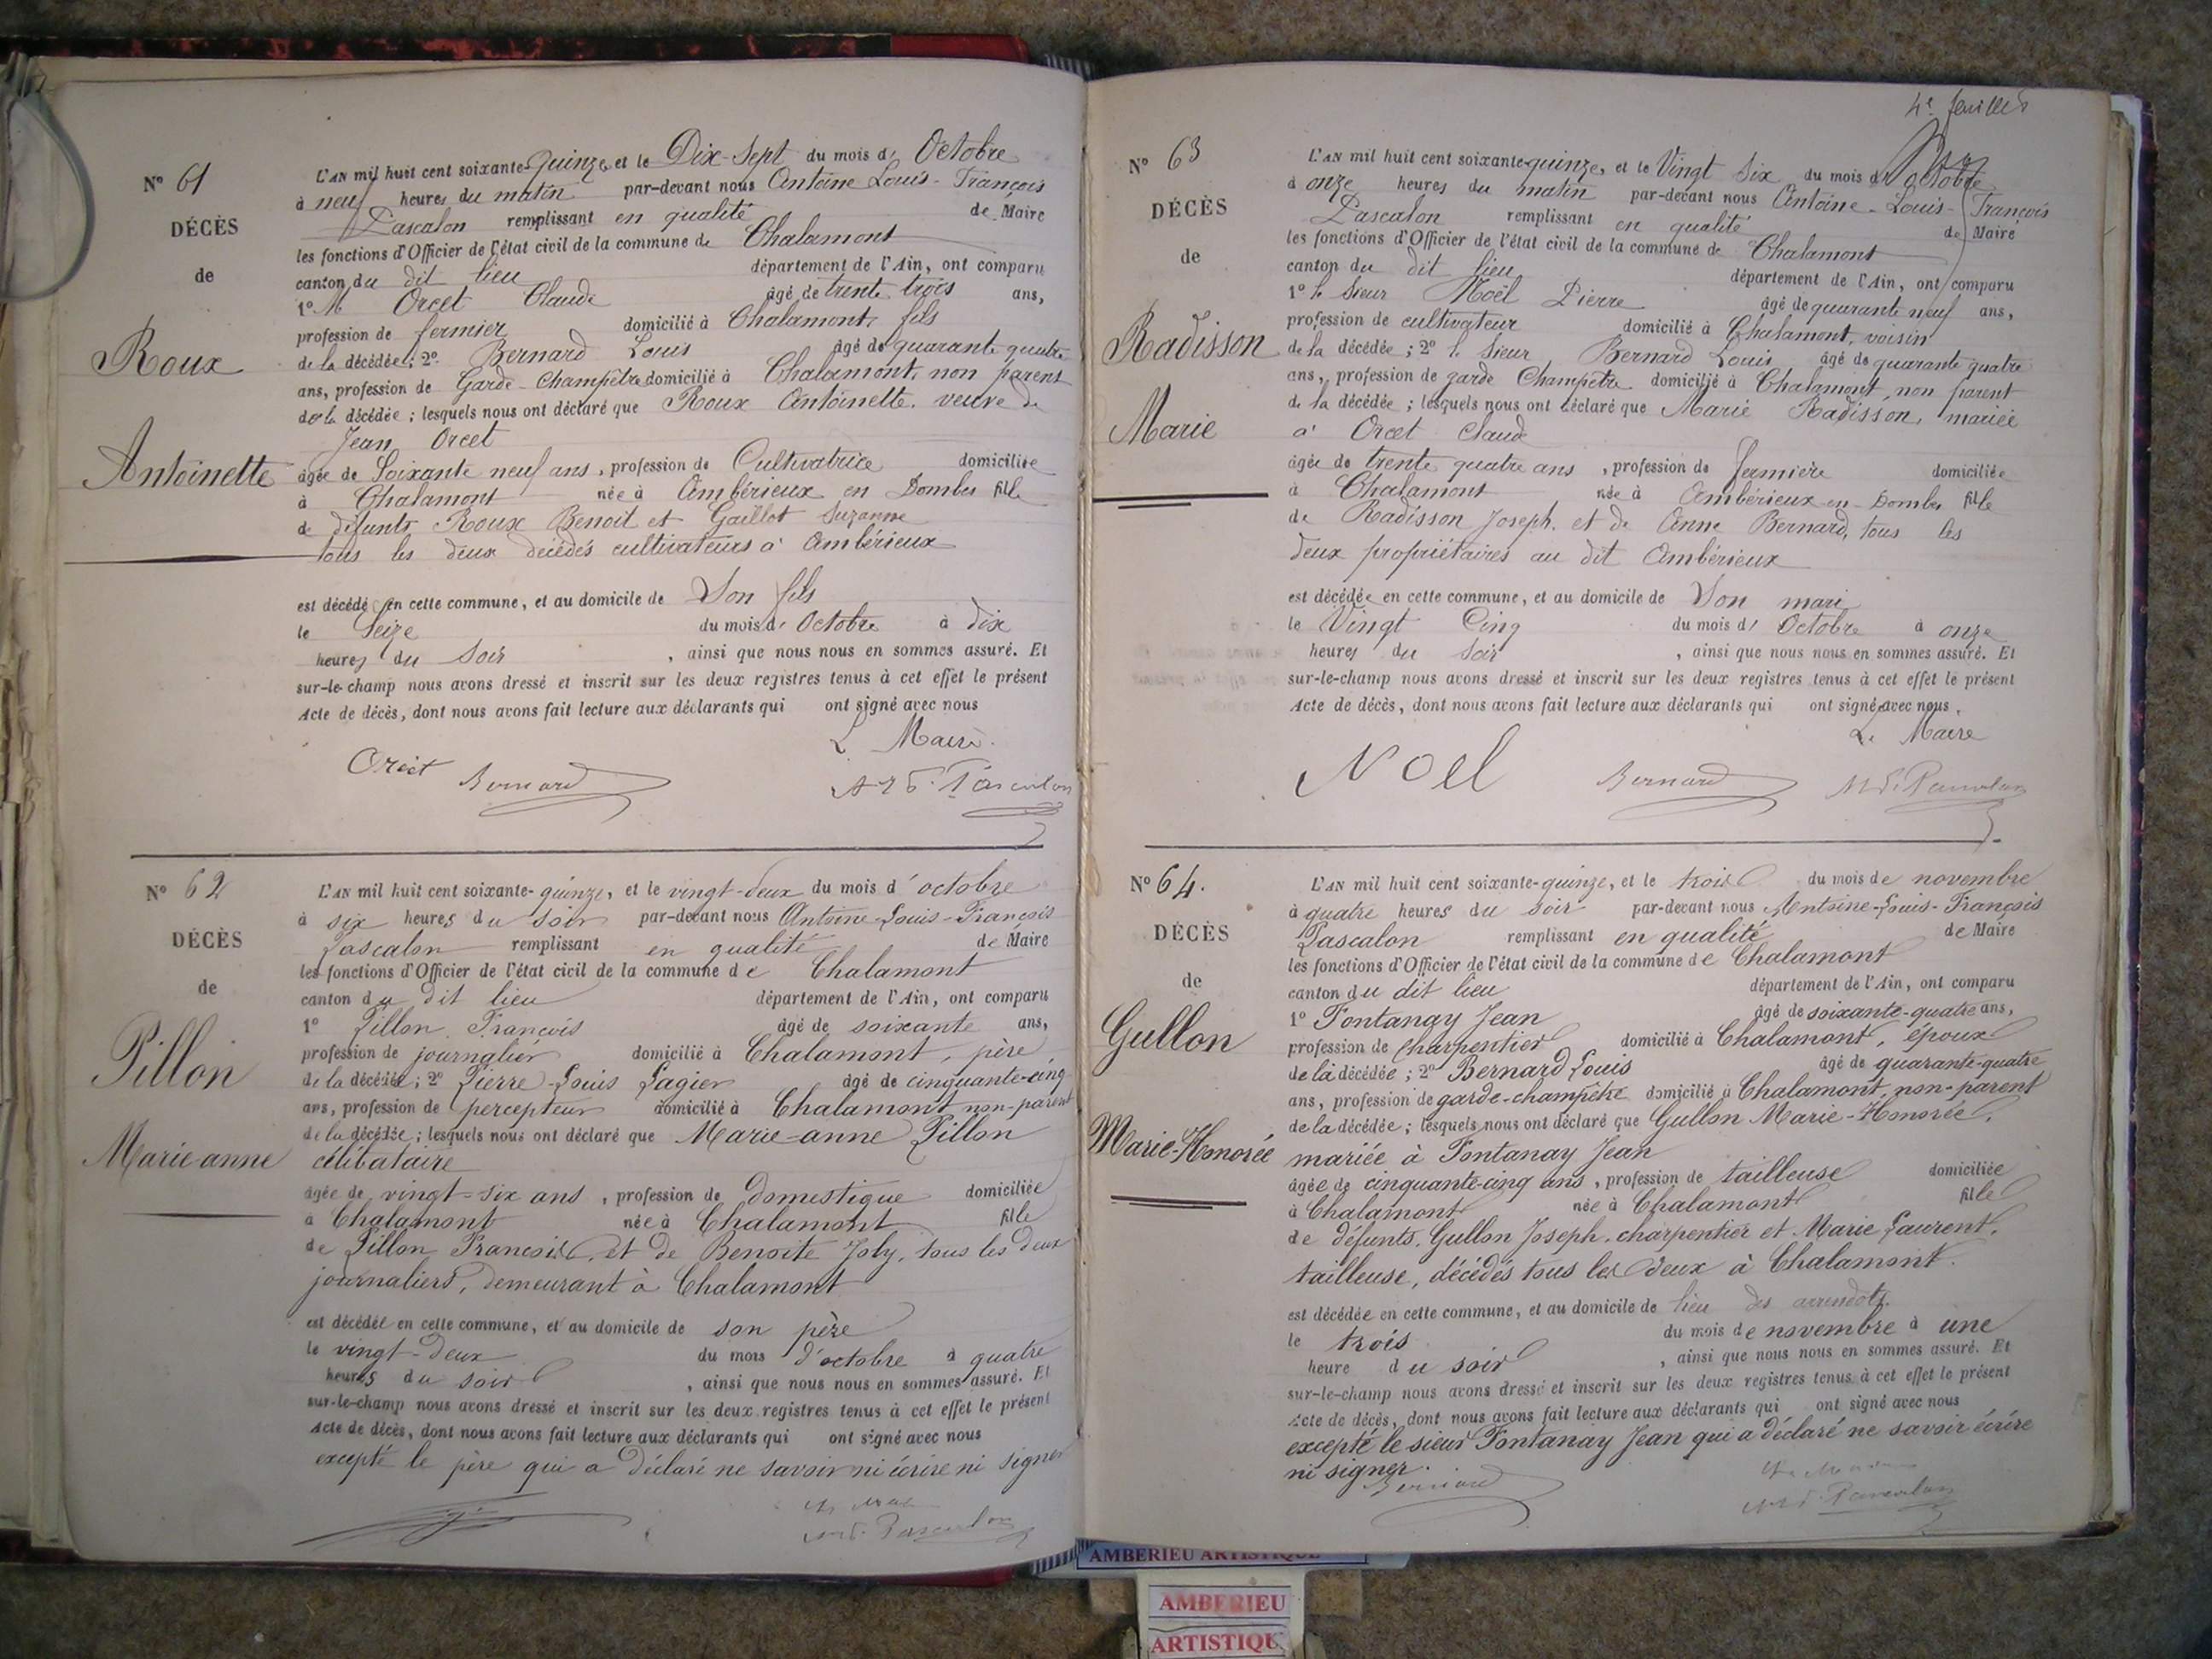 N° 61
DÉCÈS
de
Roux
Antoinette
L'AN mil huit cent soixante-quinze et le Dix-Sept du mois d'Octobre
à neuf heures du matin par-devant nous Antoine Louis-François
Pascalon remplissant en qualité de Maire
les fonctions d'Officier de l'état civil de la commune de Chalamont
canton du dit lieu département de l'Ain, ont comparu
1° M Orcet Claude âgé de trente trois ans,
profession de fermier domicilié à Chalamont, fils
de la décédée; 2° Bernard Louis âgé de quarante quatre
ans, profession de Garde-Champêtre domicilié à Chalamont, non parent
de la décédée; lesquels nous ont déclaré que Roux Antoinette. veuve de
Jean Orcet
âgée de Soixante neuf ans, profession de Cultivatrice domiciliée
à Chalamont née à Ambérieux en Dombes fille
de défunts Roux Benoit et Gaillot Suzanne
tous les deux décédés cultivateurs à Ambérieux
est décédée en cette commune, et au domicile de Son fils
le Seize du mois d'Octobre à dix
heures du Soir, ainsi que nous nous en sommes assuré. Et
sur-le-champ nous avons dressé et inscrit sur les deux registres tenus à cet effet le présent
Acte de décès, dont nous avons fait lecture aux déclarants qui ont signé avec nous
L Maire.
Orcet Bernard Pascalon
N° 62
DÉCÈS
de
Pillon
Marie-anne
L'AN mil huit cent soixante-quinze, et le vingt-deux du mois d'octobre
à six heures du soir par-devant nous Antoine-Louis-François
Pascalon remplissant en qualité de Maire
les fonctions d'Officier de l'état civil de la commune de Chalamont
canton du dit lieu département de l'Ain, ont comparu
1° Pillon François âgé de soixante ans,
profession de journalier domicilié à Chalamont, père
de la décédée; 2° Pierre-Louis Lagier âgé de cinquante-cinq
ans, profession de percepteur domicilié à Chalamont, non-parent
de la décédée; lesquels nous ont déclaré que Marie-anne Pillon
célibataire
âgée de vingt-six ans, profession de domestique domiciliée
à Chalamont née à Chalamont fille
de Pillon François, et de Benoite Joly, tous les deux
journaliers, demeurant à Chalamont
est décédée en cette commune, et au domicile de son père
le vingt-deux du mois d'octobre à quatre
heures du soir, ainsi que nous nous en sommes assuré. Et
sur-le-champ nous avons dressé et inscrit sur les deux registres tenus à cet effet le présent
Acte de décès, dont nous avons fait lecture aux déclarants qui ont signé avec nous
excepté le père qui a déclaré ne savoir ni écrire ni signer
Pascalon
4e feuillet
N° 63
DÉCÈS
de
Radisson
Marie
L'AN mil huit cent soixante-quinze, et le Vingt Six du mois d'octobre
à onze heures du matin par-devant nous Antoine-Louis-François
Pascalon remplissant en qualité de Maire
les fonctions d'Officier de l'état civil de la commune de Chalamont
canton du dit lieu département de l'Ain, ont comparu
1° le Sieur Noël Pierre âgé de quarante neuf ans,
profession de cultivateur domicilié à Chalamont, voisin
de la décédée; 2° le Sieur Bernard Louis âgé de quarante quatre
ans, profession de garde Champêtre domicilié à Chalamont, non parent
de la décédée; lesquels nous ont déclaré que Marie Radisson, mariée
à Orcet Claude
âgée de trente quatre ans, profession de fermière domiciliée
à Chalamont née à Ambérieux-en-Dombes fille
de Radisson Joseph. et de Anne Bernard, tous les
deux propriétaires au dit Ambérieux
est décédée en cette commune, et au domicile de Son mari
le Vingt Cinq du mois d'Octobre à onze
heures du Soir, ainsi que nous nous en sommes assuré. Et
sur-le-champ nous avons dressé et inscrit sur les deux registres tenus à cet effet le présent
Acte de décès, dont nous avons fait lecture aux déclarants qui ont signé avec nous.
Le Maire
Noel Bernard Pascalon
N° 64.
DÉCÈS
de
Gullon
Marie-Honorée
L'AN mil huit cent soixante-quinze, et le trois du mois de novembre
à quatre heures du soir par-devant nous Antoine-Louis-François
Pascalon remplissant en qualité de Maire
les fonctions d'Officier de l'état civil de la commune de Chalamont
canton du dit lieu département de l'Ain, ont comparu
1° Fontanay Jean âgé de soixante-quatre ans,
profession de charpentier domicilié à Chalamont, époux
de la décédée; 2° Bernard Louis âgé de quarante-quatre
ans, profession de garde-champêtre domicilié à Chalamont, non-parent
de la décédée; lesquels nous ont déclaré que Gullon Marie-Honorée,
mariée à Fontanay Jean
âgée de cinquante-cinq ans, profession de tailleuse domiciliée
à Chalamont née à Chalamont fille
de défunts, Gullon Joseph, charpentier et Marie Laurent,
tailleuse, décédés tous les deux à Chalamont.
est décédée en cette commune, et au domicile de lieu des
le trois du mois de novembre à une
heure du soir, ainsi que nous nous en sommes assuré. Et
sur-le-champ nous avons dressé et inscrit sur les deux registres tenus à cet effet le présent
Acte de décès, dont nous avons fait lecture aux déclarants qui ont signé avec nous
excepté le sieur Fontanay Jean qui a déclaré ne savoir écrire
ni signer.
Bernard Pascalon
AMBERIEU ARTISTIQUE
AMBERIEU
ARTISTIQU